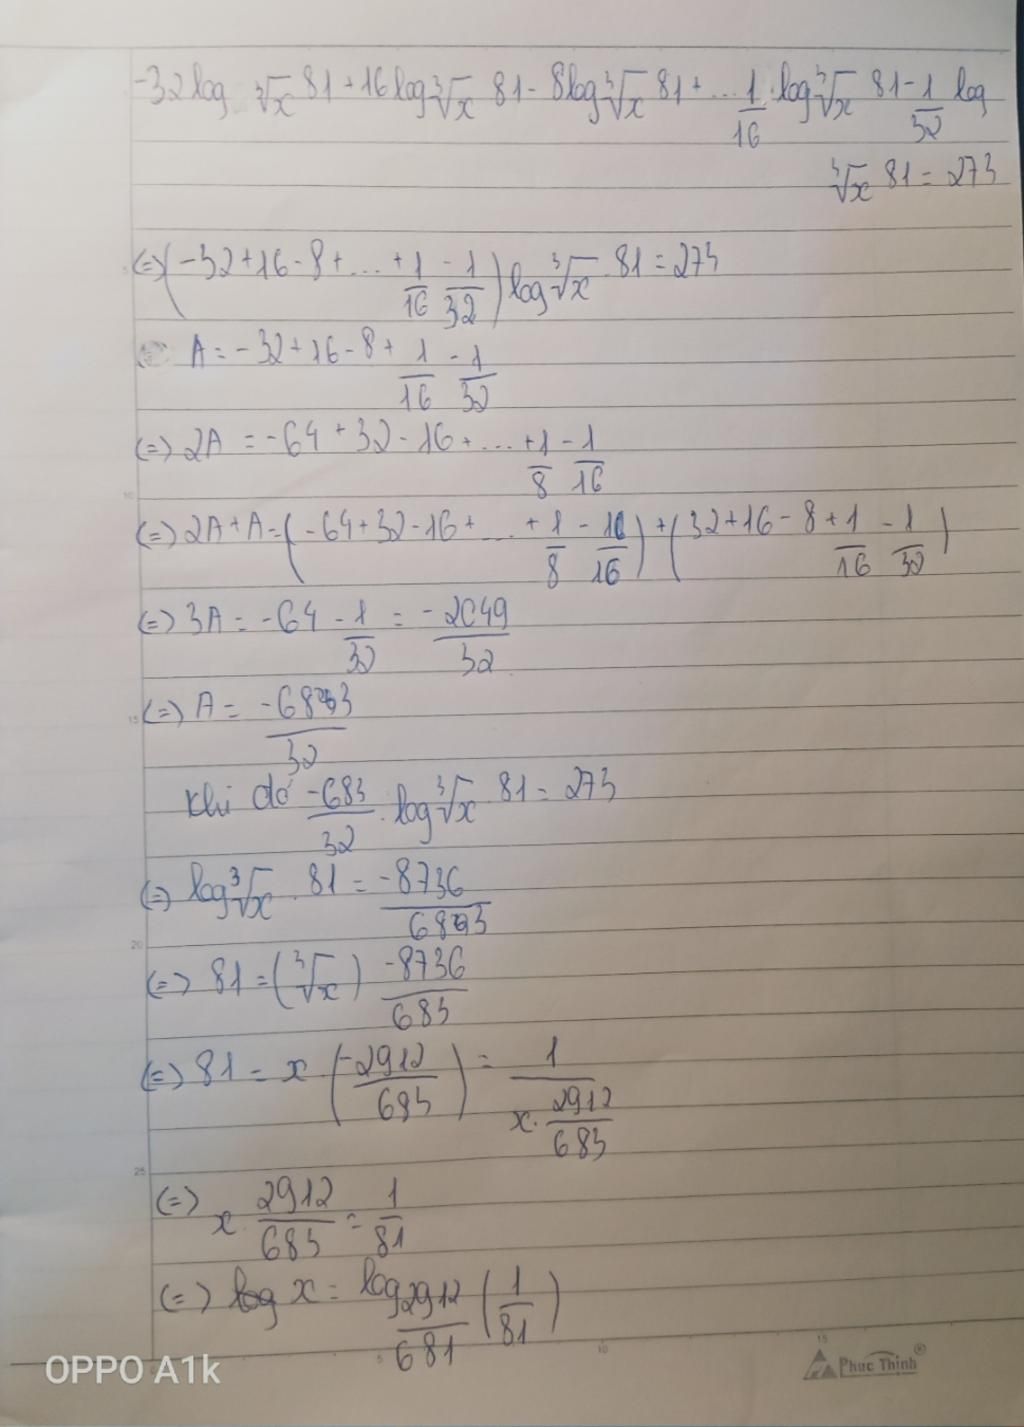 -32log ∛x 81 + 16log ∛x 81 - 8log ∛x 81 + ... 1/16 . log ∛x 81 - 1/32 log
∛x 81 = 273
(=) (-32 + 16 - 8 + ... + 1/16 - 1/32) log ∛x . 81 = 273
A = -32 + 16 - 8 + 1/16 - 1/32
(=) 2A = -64 + 32 - 16 + ... + 1/8 - 1/16
(=) 2A + A = (-64 + 32 - 16 + ... + 1/8 - 1/16) + (32 + 16 - 8 + 1/16 - 1/32)
(=) 3A = -64 - 1/32 = -2049/32
(=) A = -683/32
Khi đó -683/32 . log ∛x 81 = 273
(=) log ∛x . 81 = -8736/683
(=) 81 = (∛x) -8736/683
(=) 81 = x (-2912/683) = 1/x . 2912/683
(=) x . 2912/683 = 1/81
(=) log x = log 2912/681 (1/81)
OPPO A1k
Phuc Thinh®
5 10 15 20 25